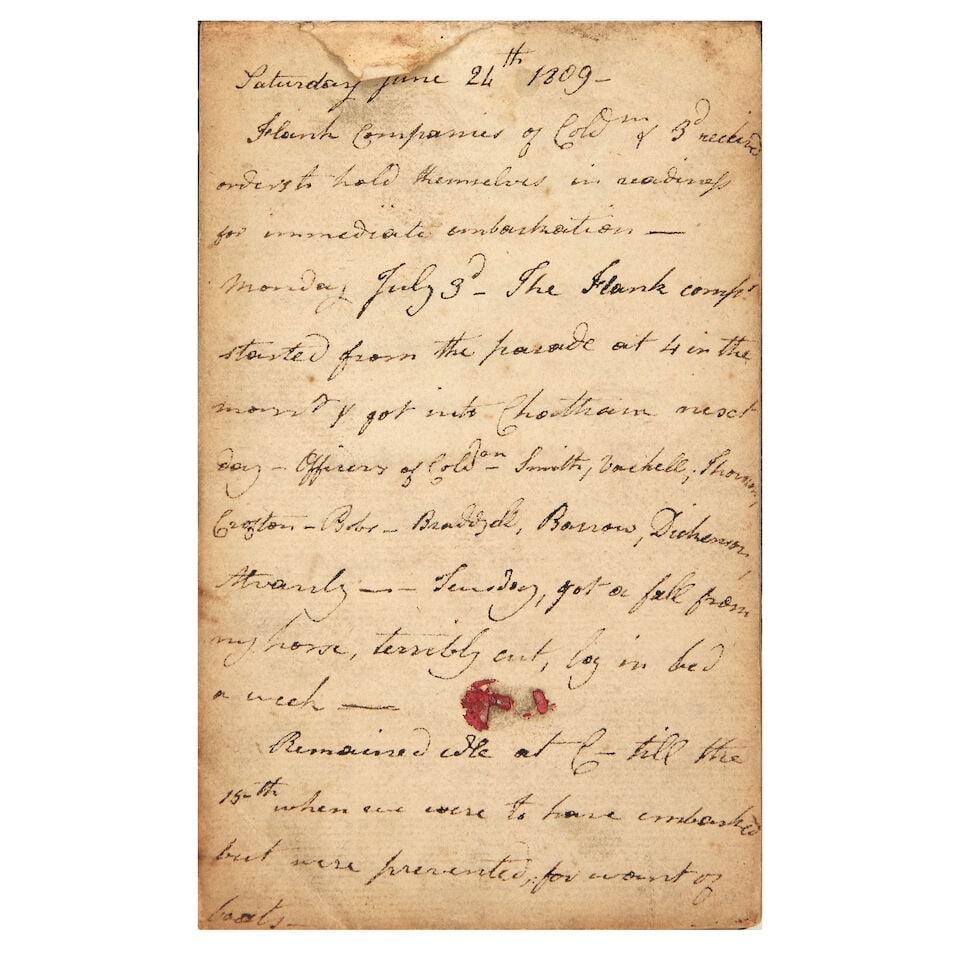 Saturday June 24th 1809 -
Flank Companies of Coldm & 3d received
orders to hold themselves in readiness
for immediate embarkation —
Monday July 3d - The Flank comps
started from the parade at 4 in the
morng & got into Chatham next
day - Officers of Coldm - Smith, Vachell,
Crofton - Bobs - Braddyll, Barrow, Dickenson,
— - Tuesday, got a fall from
my horse, terribly cut, lay in bed
a week —
Remained idle at C— till the
15th when we were to have embarked
but were prevented, for want of
boats -